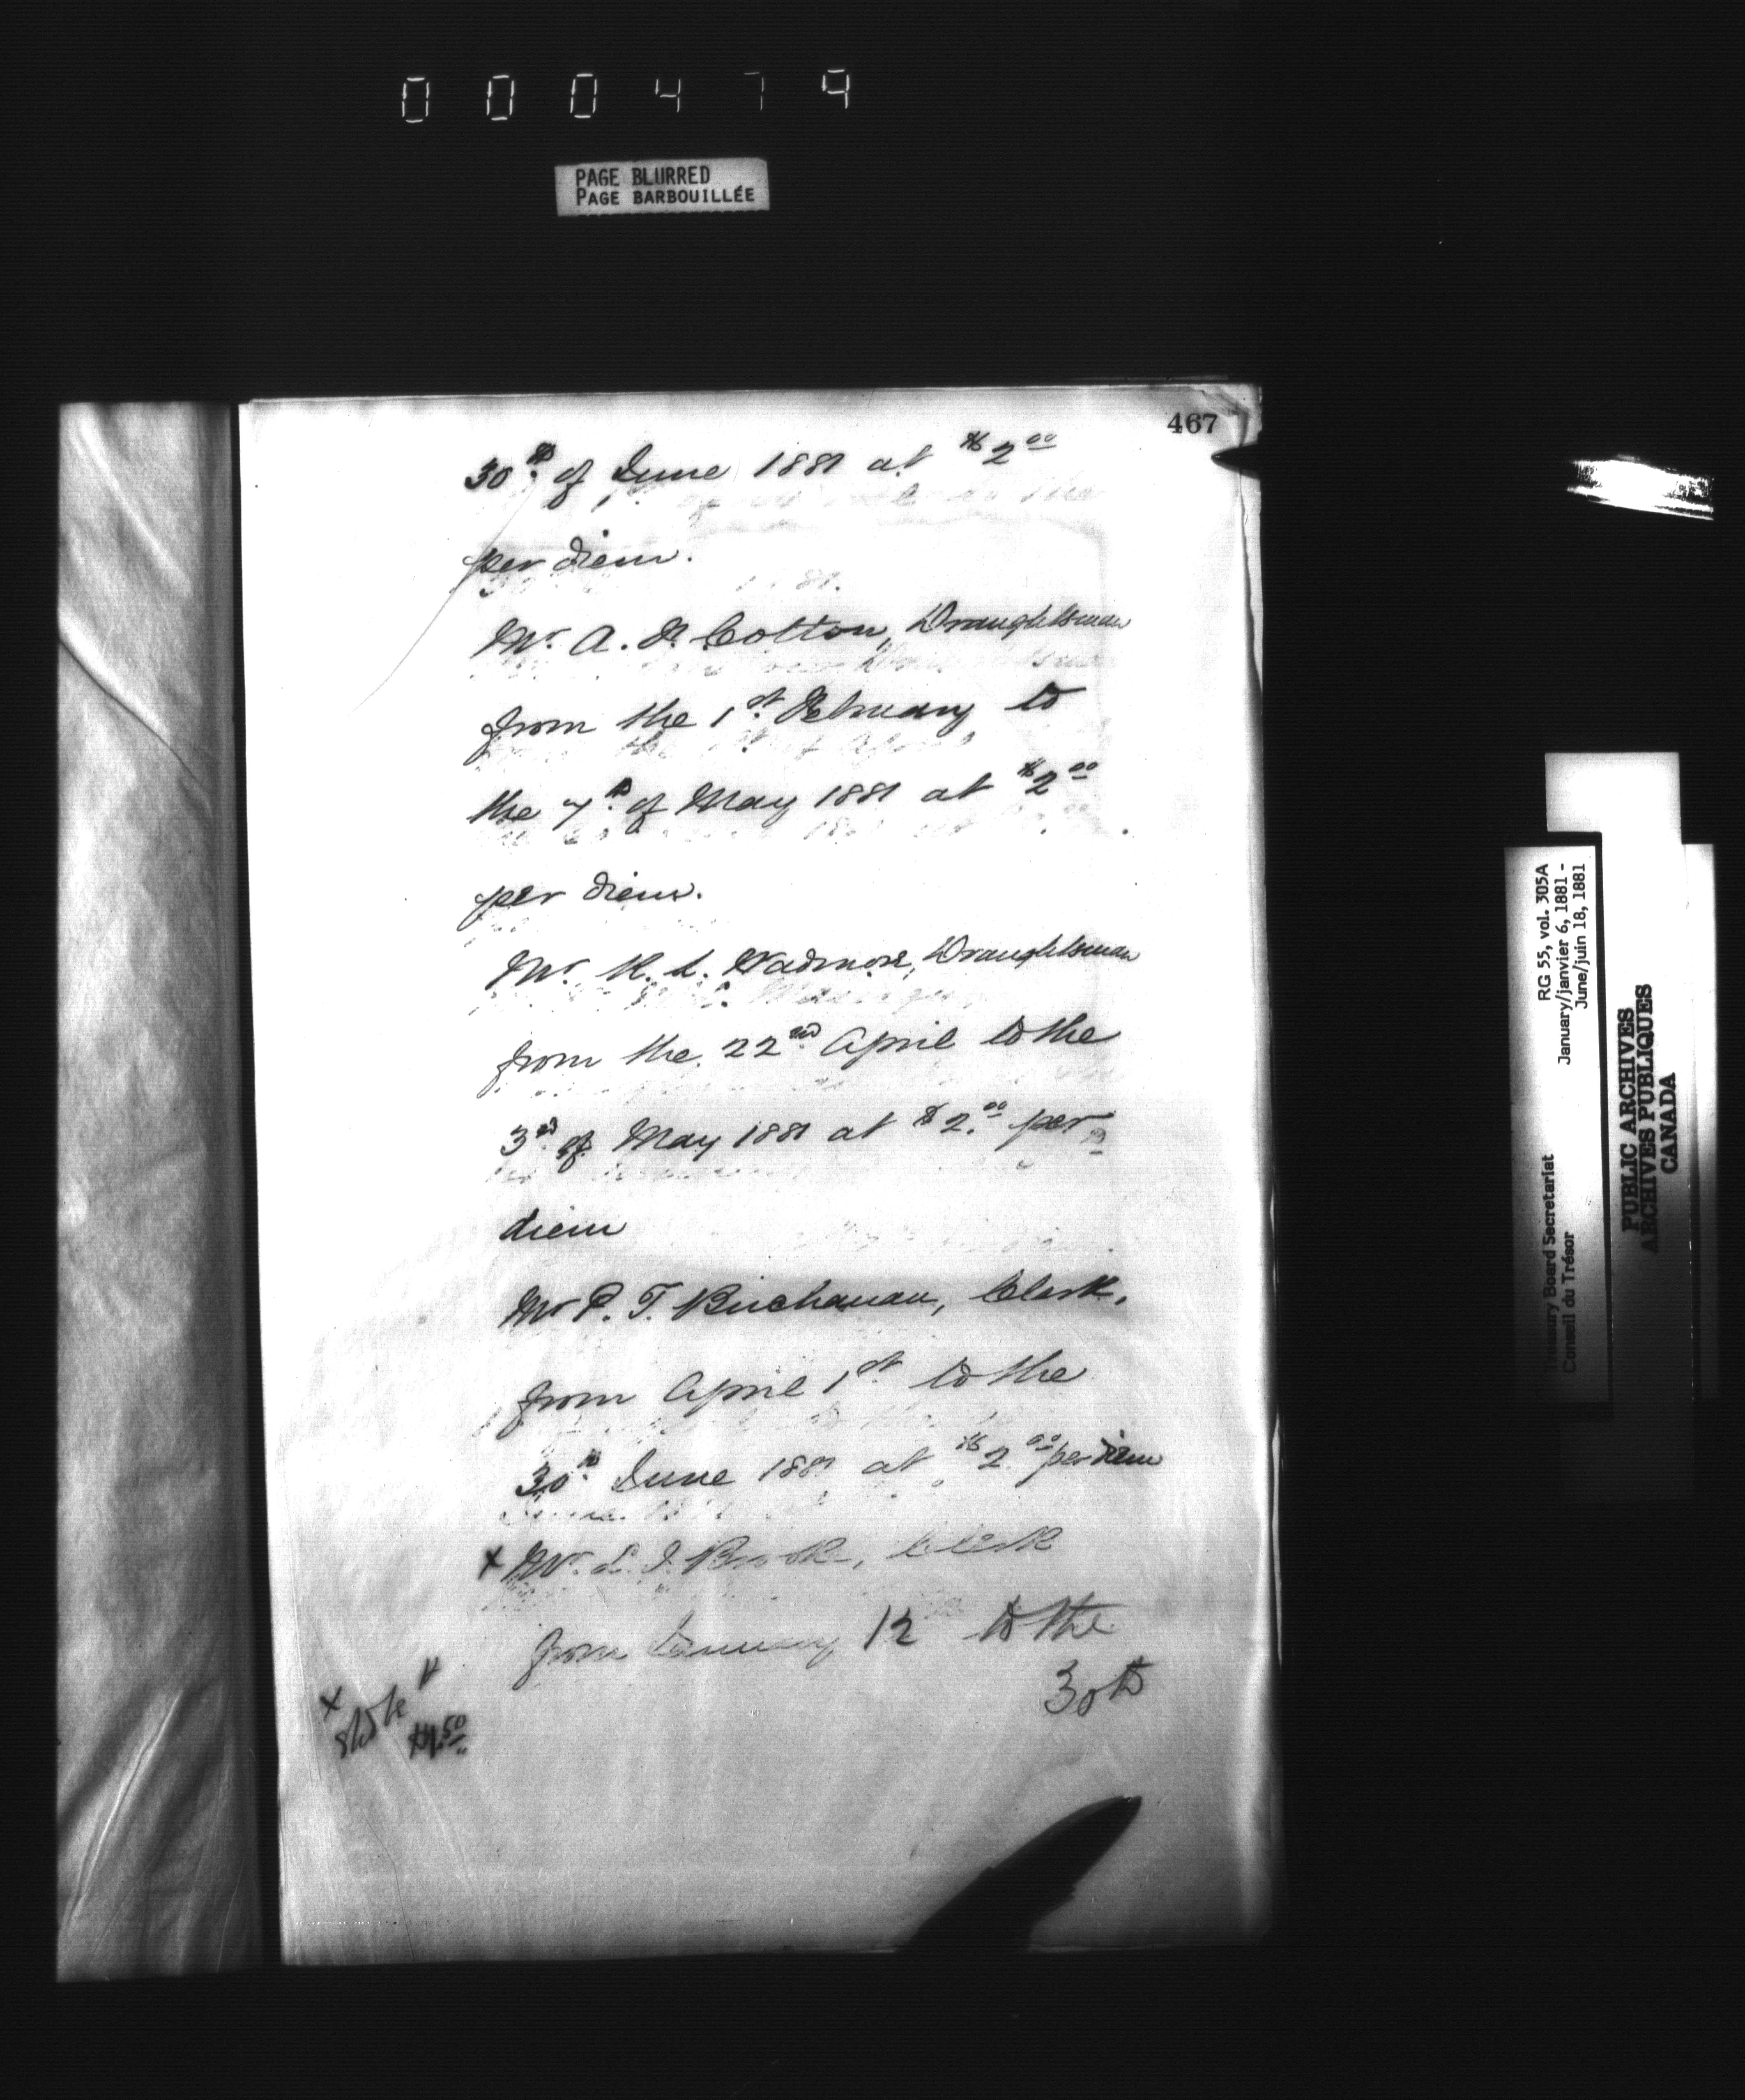 000479
PAGE BLURRED
PAGE BARBOUILLÉE
467
30th of June 1881 at $2.00
per diem.
Mr. A. F. Cotton, Draughtsman
from the 1st February to
the 7th of May 1881 at $2.00
per diem.
Mr. R. L. Wadmore, Draughtsman
from the 22nd April to the
3rd of May 1881 at $2.00 per
diem
Mr P. T. Buchanan, Clerk,
from April 1st to the
30th June 1881 at $2.00 per diem
x Mr. L. J. Clerk
from January 12 to the
30th
x
$1.50
RG 55, vol. 305A
January/janvier 6, 1881 -
June/juin 18, 1881
Treasury Board Secretariat
Conseil du Trésor
PUBLIC ARCHIVES
ARCHIVES PUBLIQUES
CANADA